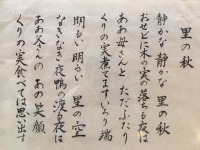 里の秋
静かな静かな 里の秋
おせどに木の実の落ちる夜は
ああ母さんと ただふたり
くりの実煮てます いろり端
明るい明るい 星の空
なきなき夜鴨の渡る夜は
ああ父さんの あの笑顔
くりの実食べては思い出す